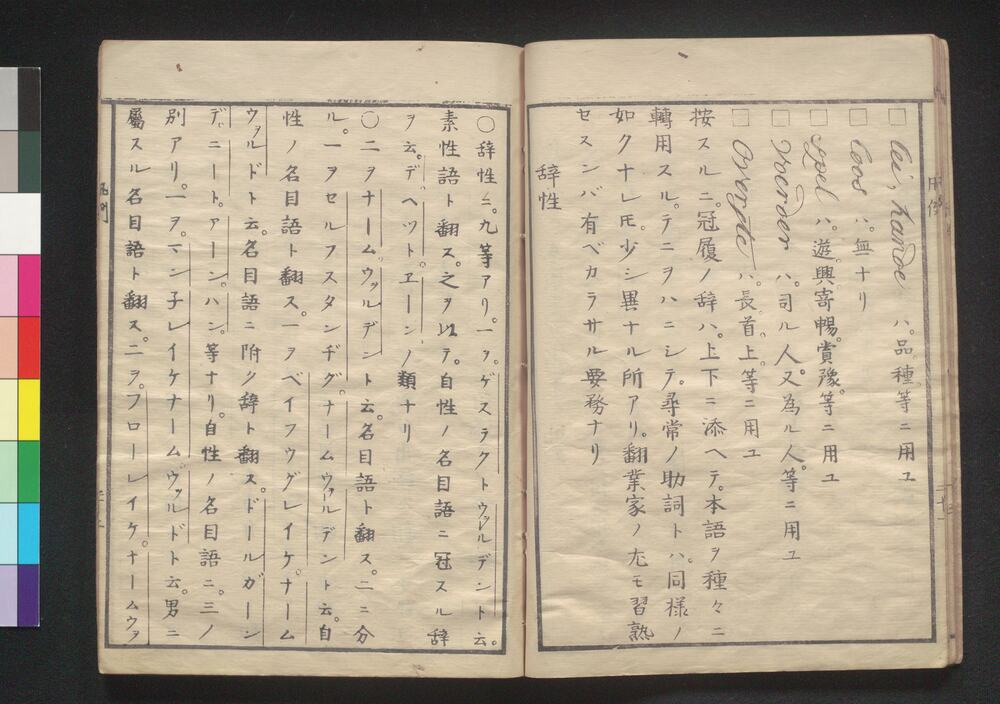 □ lei, hande ハ。品種等ニ用ユ
□ loos ハ。無ナリ
□ spel ハ。遊興寄暢。賞豫。等ニ用ユ
□ ハ。司ル人。又為ル人。等ニ用ユ
□ Overste ハ。長。首。上。等ニ用ユ
按スルニ。冠履ノ辞ハ。上下ニ添ヘテ。本語ヲ種々ニ
轉用スル。テニヲハニシテ。尋常ノ助詞トハ。同様ノ
如クナレ𪜈。少シ異ナル所アリ。翻業家ノ尤モ習熟
セスンバ有ベカラサル要務ナリ
辞性
〇辞性ニ。九等アリ。一ヲ。ゲスラクトウヲルデント云。
素性語ト翻ス。之ヲ以テ。自性ノ名目語ニ冠スル辞
ヲ云。デ。ヘット。エーンノ類ナリ
〇二ヲナームウヲルデント云。名目語ト翻ス。二ニ分
ル。一ヲセルフスタンヂグ。ナームウヲールデント云。自
性ノ名目語ト翻ス。一ヲベイフウグレイケ。ナーム
ウヲルドト云。名目語ニ附ク辞ト翻ス。ドールガーン
デ。ニート。アーン。ハン。等ナリ。自性ノ名目語ニ。三ノ
別アリ。一ヲ。マン子レイケナームウヲルドト云。男ニ
屬スル名目語ト翻ス。二ヲ。フローレイケ。ナームウヲ
凡例